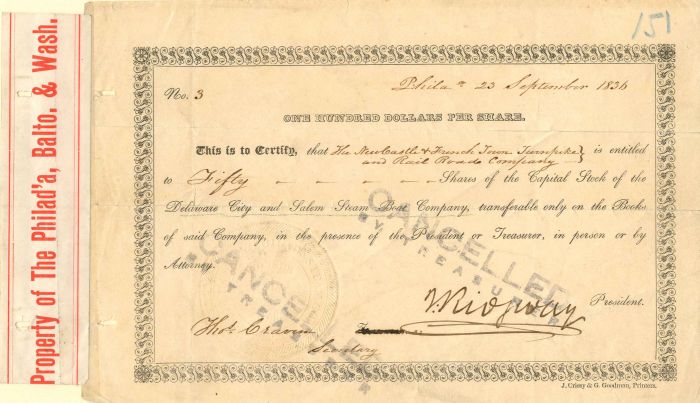 Property of The Philad'a, Balto. & Wash.
151
No. 3
Phila a 23 September 1836
ONE HUNDRED DOLLARS PER SHARE.
This is to Certify, that The NewCastle & French Town Turnpike
and Rail Road Company } is entitled
to Fifty Shares of the Capital Stock of the
Delaware City and Salem Steam Boat Company, transferable only on the Books
of said Company, in the presence of the President or Treasurer, in person or by
Attorney.
CANCELLED
BY TREASURER
CANCELLED
BY TREASURER
President.
Thos. Craven
Secretary
J. Crissy & G. Goodman, Printers.